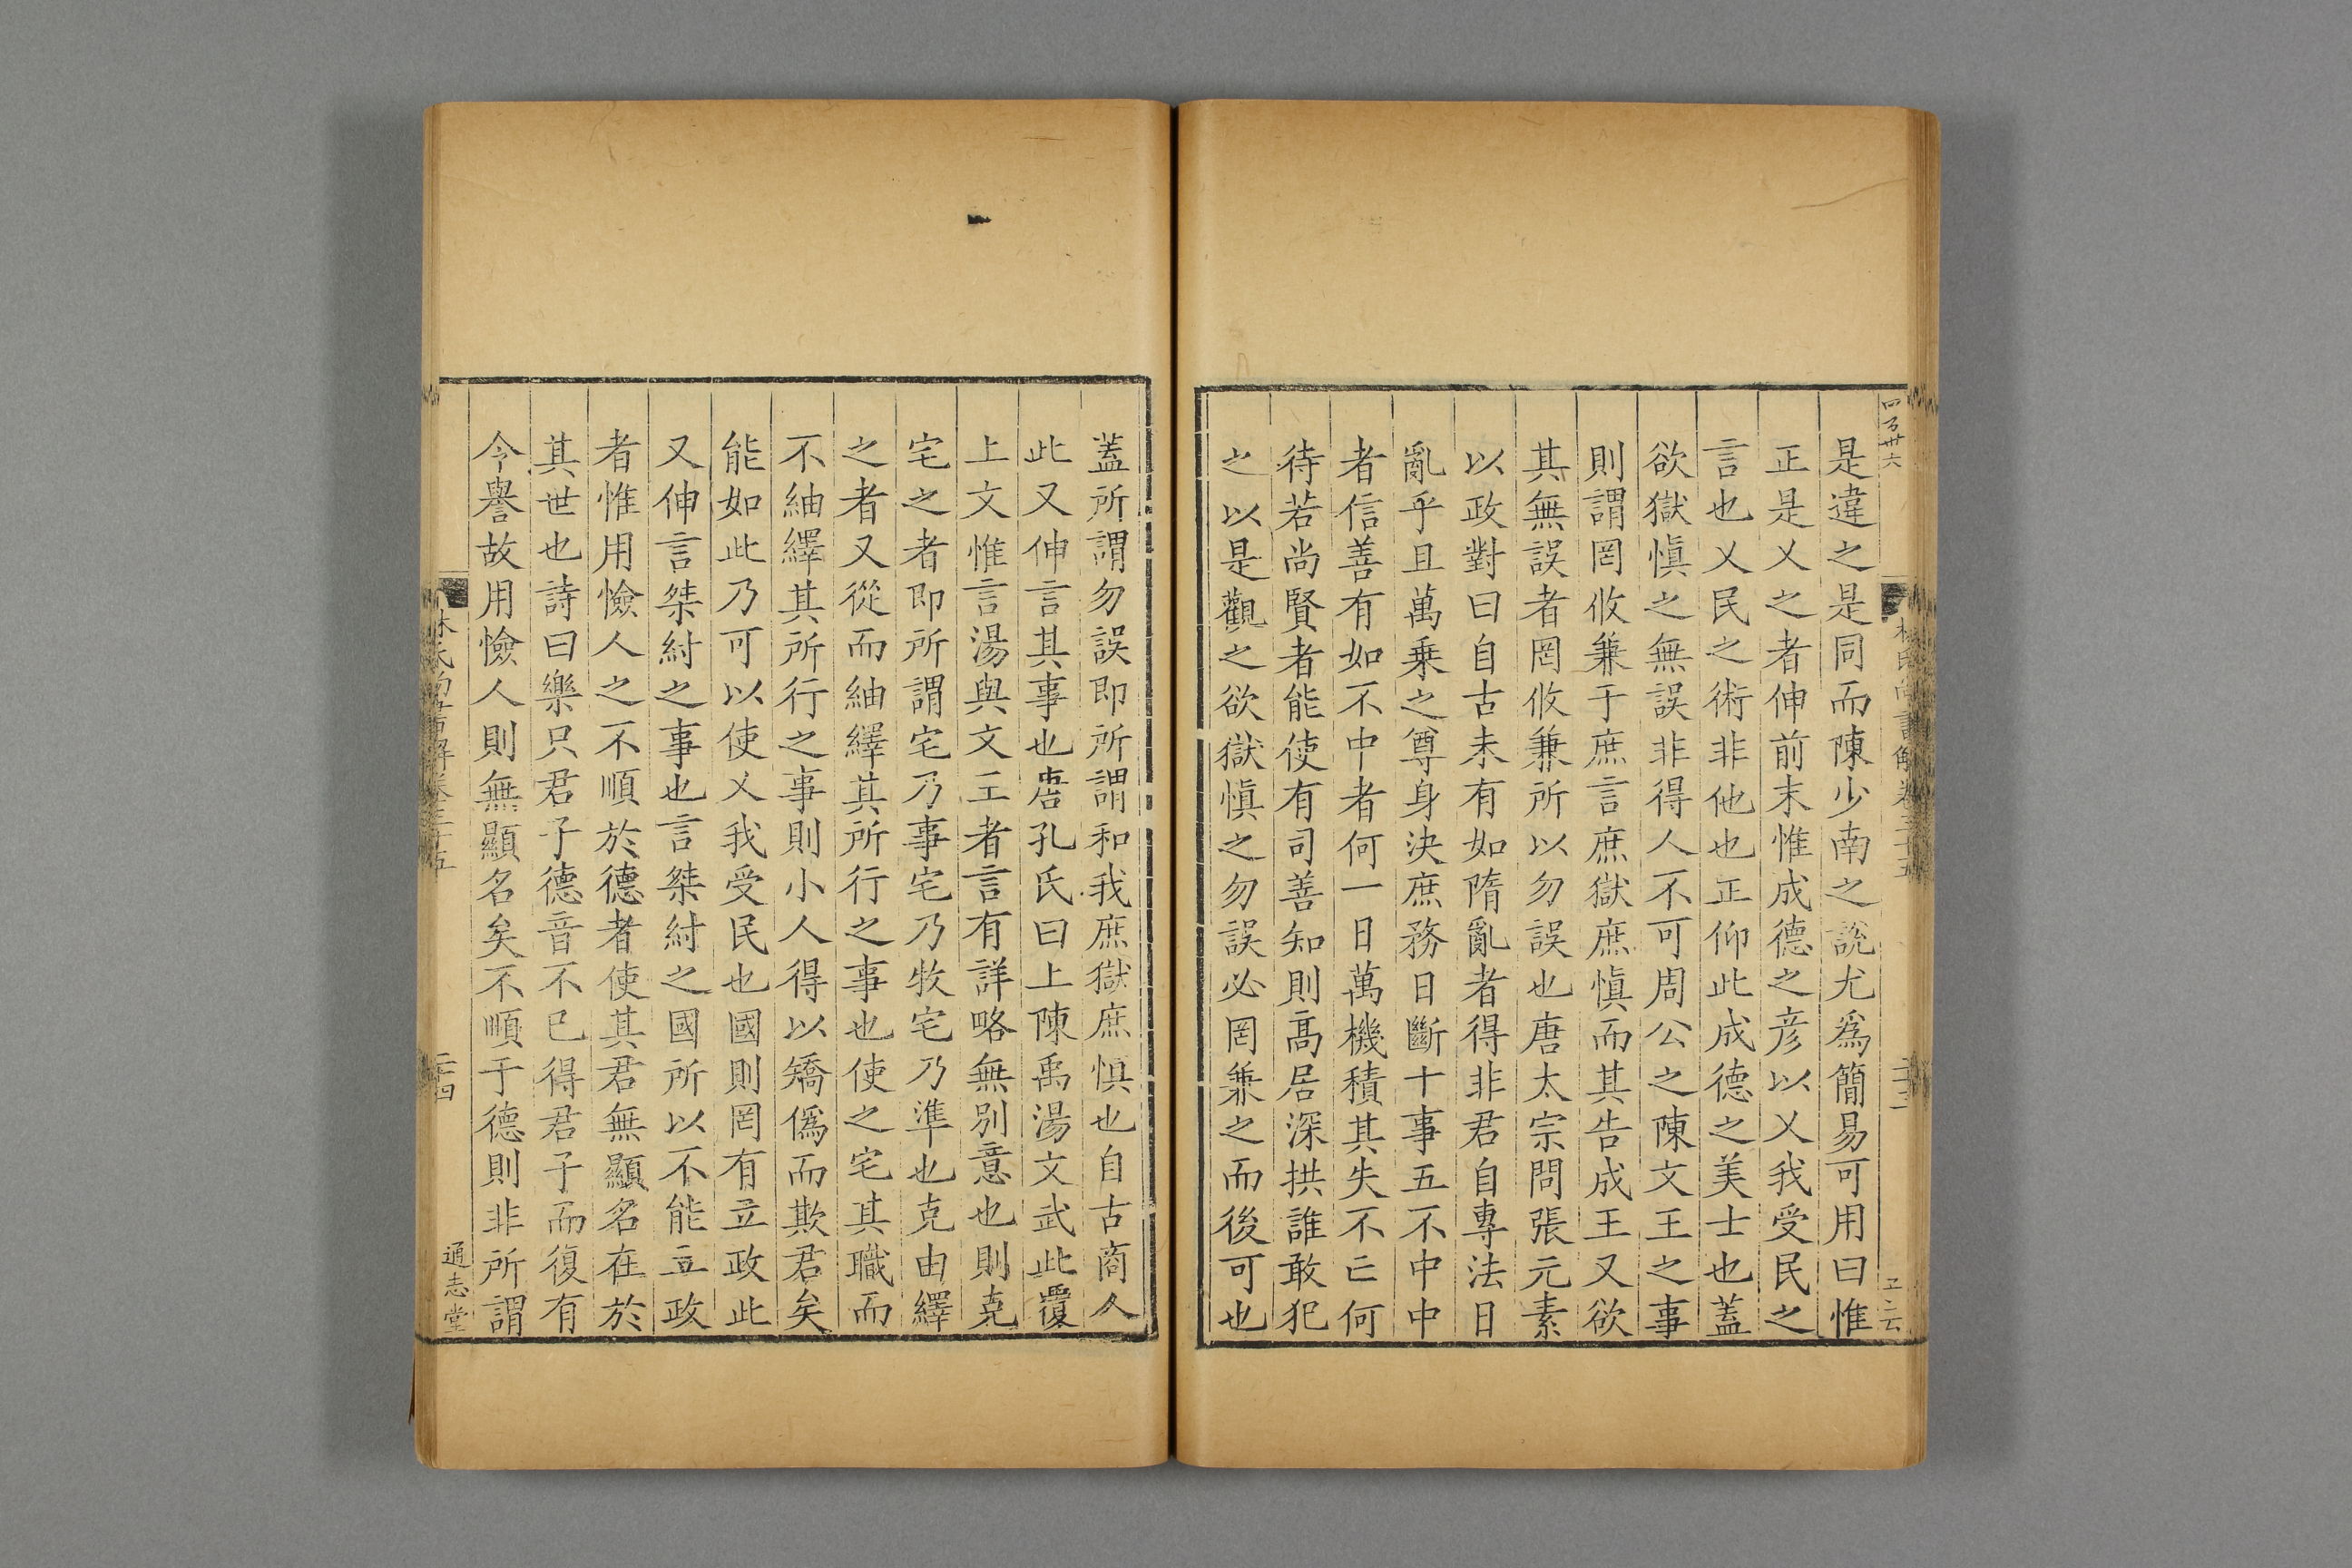 是違之是同而陳少南之說尤爲簡易可用曰惟
正是乂之者伸前末惟成德之彦以乂我受民之
言也乂民之術非他也正仰此成德之美士也蓋
欲獄慎之無誤非得人不可周公之陳文王之事
則謂罔攸兼于庶言庶獄庶慎而其告成王又欲
其無誤者罔攸兼所以勿誤也唐太宗問張元素
以政對曰自古未有如隋亂者得非君自專法日
亂乎且萬乗之尊身決庶務日斷十事五不中中
者信善有如不中者何一日萬機積其失不亡何
待若尚賢者能使有司善知則高居深拱誰敢犯
之以是觀之欲獄慎之勿誤必罔兼之而後可也
蓋所謂勿誤即所謂和我庶獄庶慎也自古商人
此又伸言其事也唐孔氏曰上陳禹湯文武此覆
上文惟言湯與文王者言有詳略無別意也則克
宅之者即所謂宅乃事宅乃牧宅乃準也克由繹
之者又從而紬繹其所行之事也使之宅其職而
不紬繹其所行之事則小人得以矯僞而欺君矣
能如此乃可以使乂我受民也國則罔有立政此
又伸言桀紂之事也言桀紂之國所以不能立政
者惟用憸人之不順於德者使其君無顯名在於
其世也詩曰樂只君子德音不已得君子而復有
令譽故用憸人則無顯名矣不順于德則非所謂
林氏尚書解卷三十五
二十四
通志堂